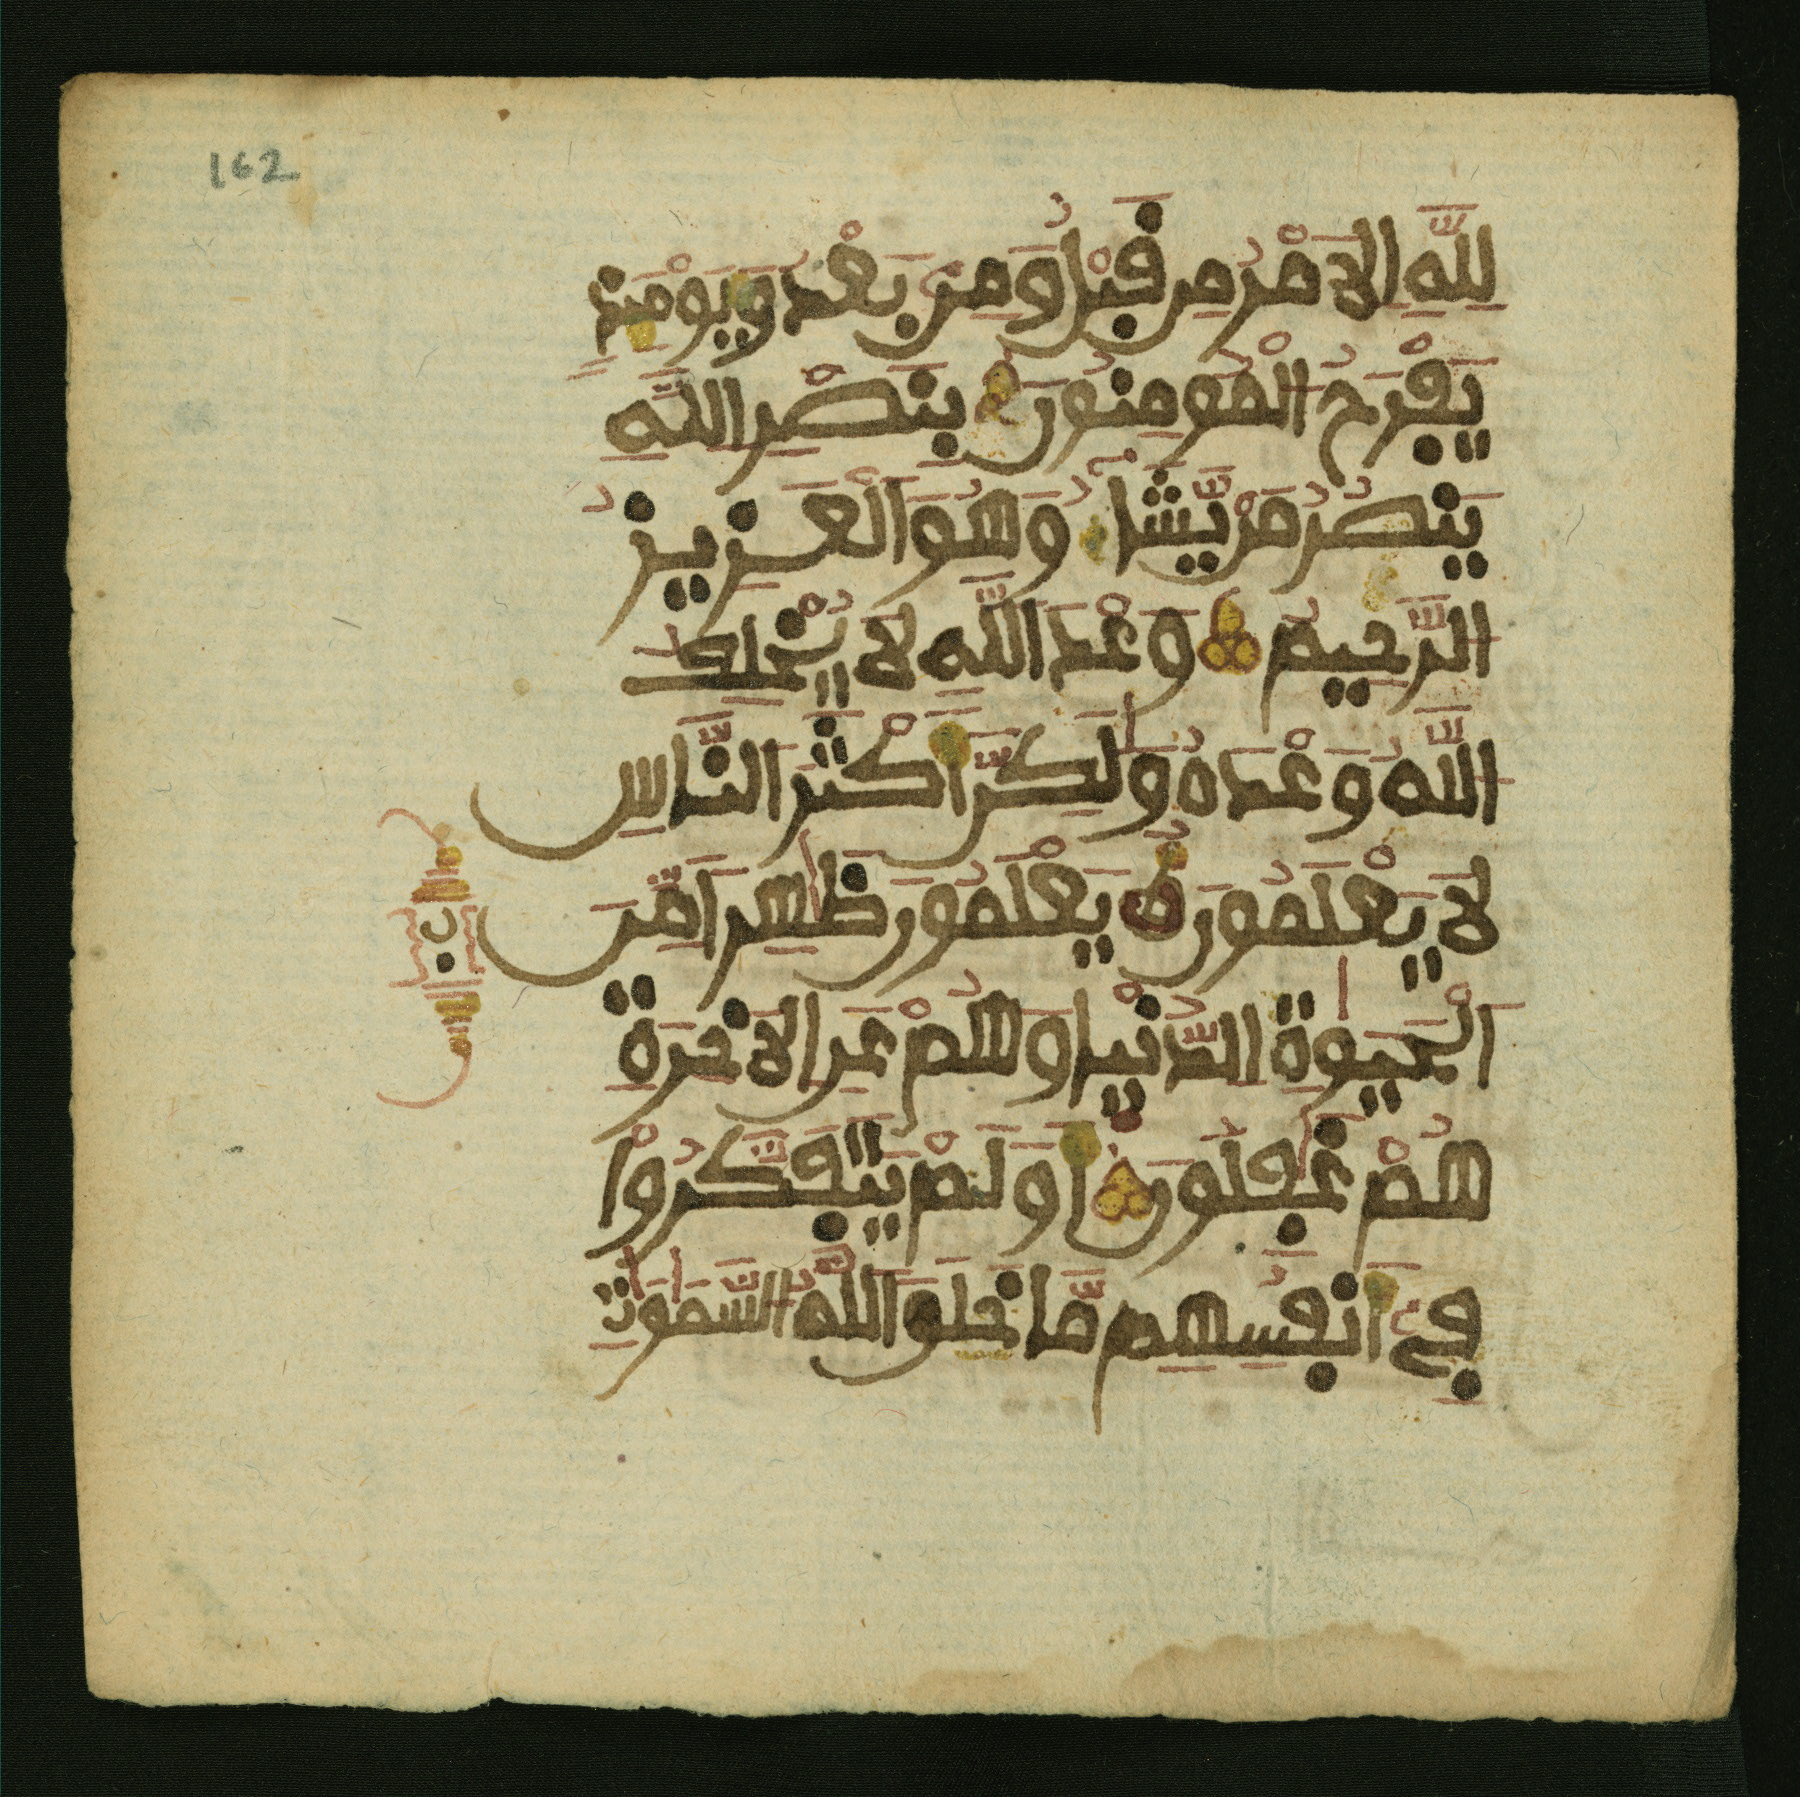 162
لِلَّهِ الَامْرُ مِن قَبْلُ وَمِنۢ بَعْدُ وَيَوْمَئِذٍ
يَفْرَحُ الْمُومِنُونَ بِنَصْرِ اللَّهِ
يَنصُرُ مَنْ يَّشَآءُ وَهُوَ الْعَزِيزُ
الرَّحِيمُ وَعْدَ اللَّهِ لَا يُخْلِفُ
اللَّهُ وَعْدَهُ وَلَٰكِنَّ أَكْثَرَ النَّاسِ
لَا يَعْلَمُونَ يَعْلَمُونَ ظَٰهِرًا مِّنَ
الْحَيَوٰةِ الدُّنْيَا وَهُمْ عَنِ الَاخِرَةِ
هُمْ غَٰفِلُونَ أَوَلَمْ يَتَفَكَّرُوا
فِىٓ أَنفُسِهِم مَّا خَلَقَ اللَّهُ السَّمَٰوَٰتِ